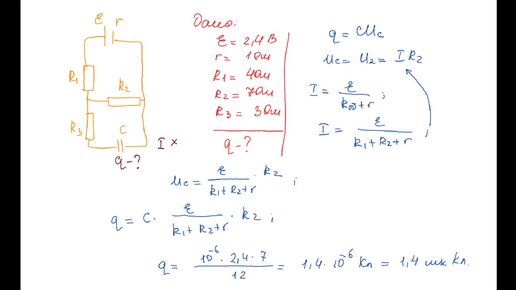 ε r
R1
R2
R3 C
q-? I ×
Дано:
ε = 2,4 В
r = 1 Ом
R1 = 4 Ом
R2 = 7 Ом
R3 = 3 Ом
q-?
q = CUc
Uc = U2 = I R2
I = ε / (Rоб + r) ;
I = ε / (R1 + R2 + r) ;
Uc = ε / (R1 + R2 + r) · R2 ;
q = C · ε / (R1 + R2 + r) · R2 ;
q = 10^-6 · 2,4 · 7 / 12 = 1,4 · 10^-6 Кл = 1,4 мк Кл.